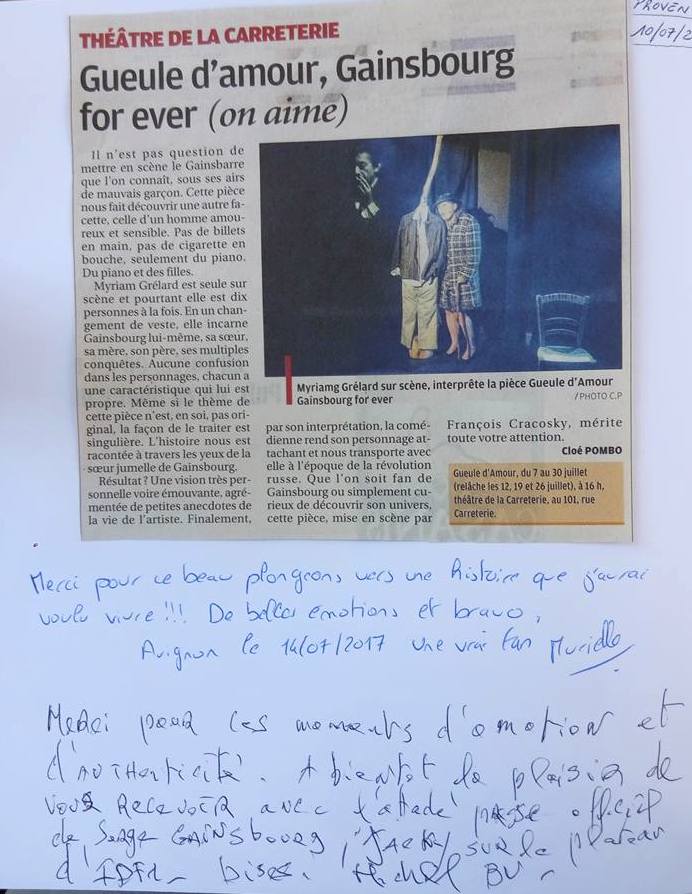 PROVEN
10/07/2
THÉÂTRE DE LA CARRETERIE
Gueule d'amour, Gainsbourg
for ever (on aime)
Il n'est pas question de
mettre en scène le Gainsbarre
que l'on connaît, sous ses airs
de mauvais garçon. Cette pièce
nous fait découvrir une autre fa-
cette, celle d'un homme amou-
reux et sensible. Pas de billets
en main, pas de cigarette en
bouche, seulement du piano.
Du piano et des filles.
Myriam Grélard est seule sur
scène et pourtant elle est dix
personnes à la fois. En un chan-
gement de veste, elle incarne
Gainsbourg lui-même, sa sœur,
sa mère, son père, ses multiples
conquêtes. Aucune confusion
dans les personnages, chacun a
une caractéristique qui lui est
propre. Même si le thème de
cette pièce n'est, en soi, pas ori-
ginal, la façon de le traiter est
singulière. L'histoire nous est
racontée à travers les yeux de la
sœur jumelle de Gainsbourg.
Résultat ? Une vision très per-
sonnelle voire émouvante, agré-
mentée de petites anecdotes de
la vie de l'artiste. Finalement,
Myriamg Grélard sur scène, interprète la pièce Gueule d'Amour
Gainsbourg for ever
/PHOTO C.P
par son interprétation, la comé-
dienne rend son personnage at-
tachant et nous transporte avec
elle à l'époque de la révolution
russe. Que l'on soit fan de
Gainsbourg ou simplement cu-
rieux de découvrir son univers,
cette pièce, mise en scène par
François Cracosky, mérite
toute votre attention.
Cloé POMBO
Gueule d'Amour, du 7 au 30 juillet
(relâche les 12, 19 et 26 juillet), à 16 h,
théâtre de la Carreterie, au 101, rue
Carreterie.
Merci pour ce beau plongeons vers une histoire que j'aurai
voulu vivre !!! De belles émotions et bravo,
Avignon le 14/07/2017 une vrai fan Murielle
Merci pour ces moments d'omotion et
d'AUTHENTICITÉ. A bientot le plaisir de
vous RECEVOIR avec officiel
de Serge GAINSbourg, JACKY SUR le plateau
d'IDFM - bises. Michel